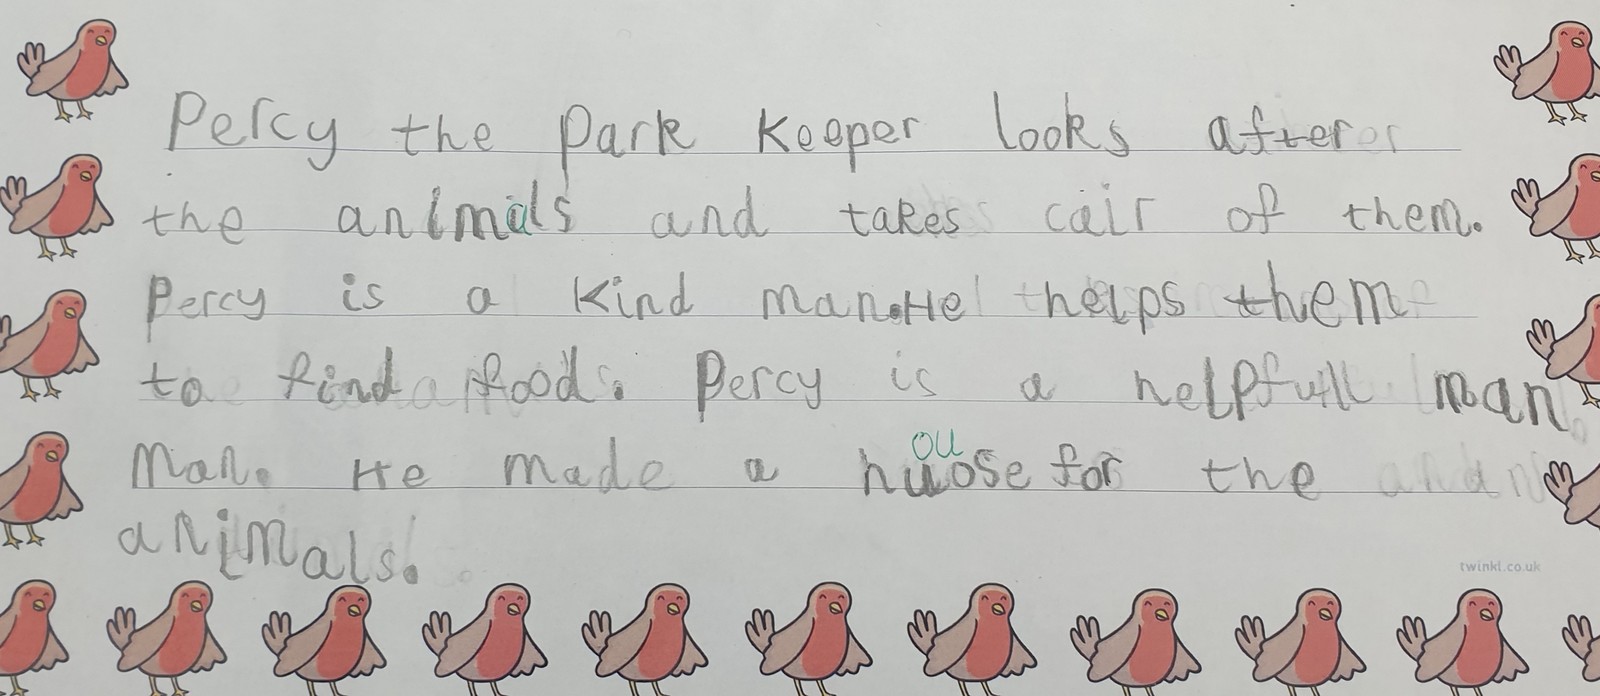 Percy the park keeper looks after
the animals and takes cair of them.
Percy is a kind man. He helps them
to find food. Percy is a helpfull man
man. He made a huose for the
ou
animals.
twinkl.co.uk